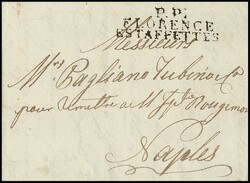 P.P.
FLORENCE
ESTAFFETTES
Messieurs
Mrs Pagliano Tubino & Co
pour remettre a Mr Rougemon
Naples